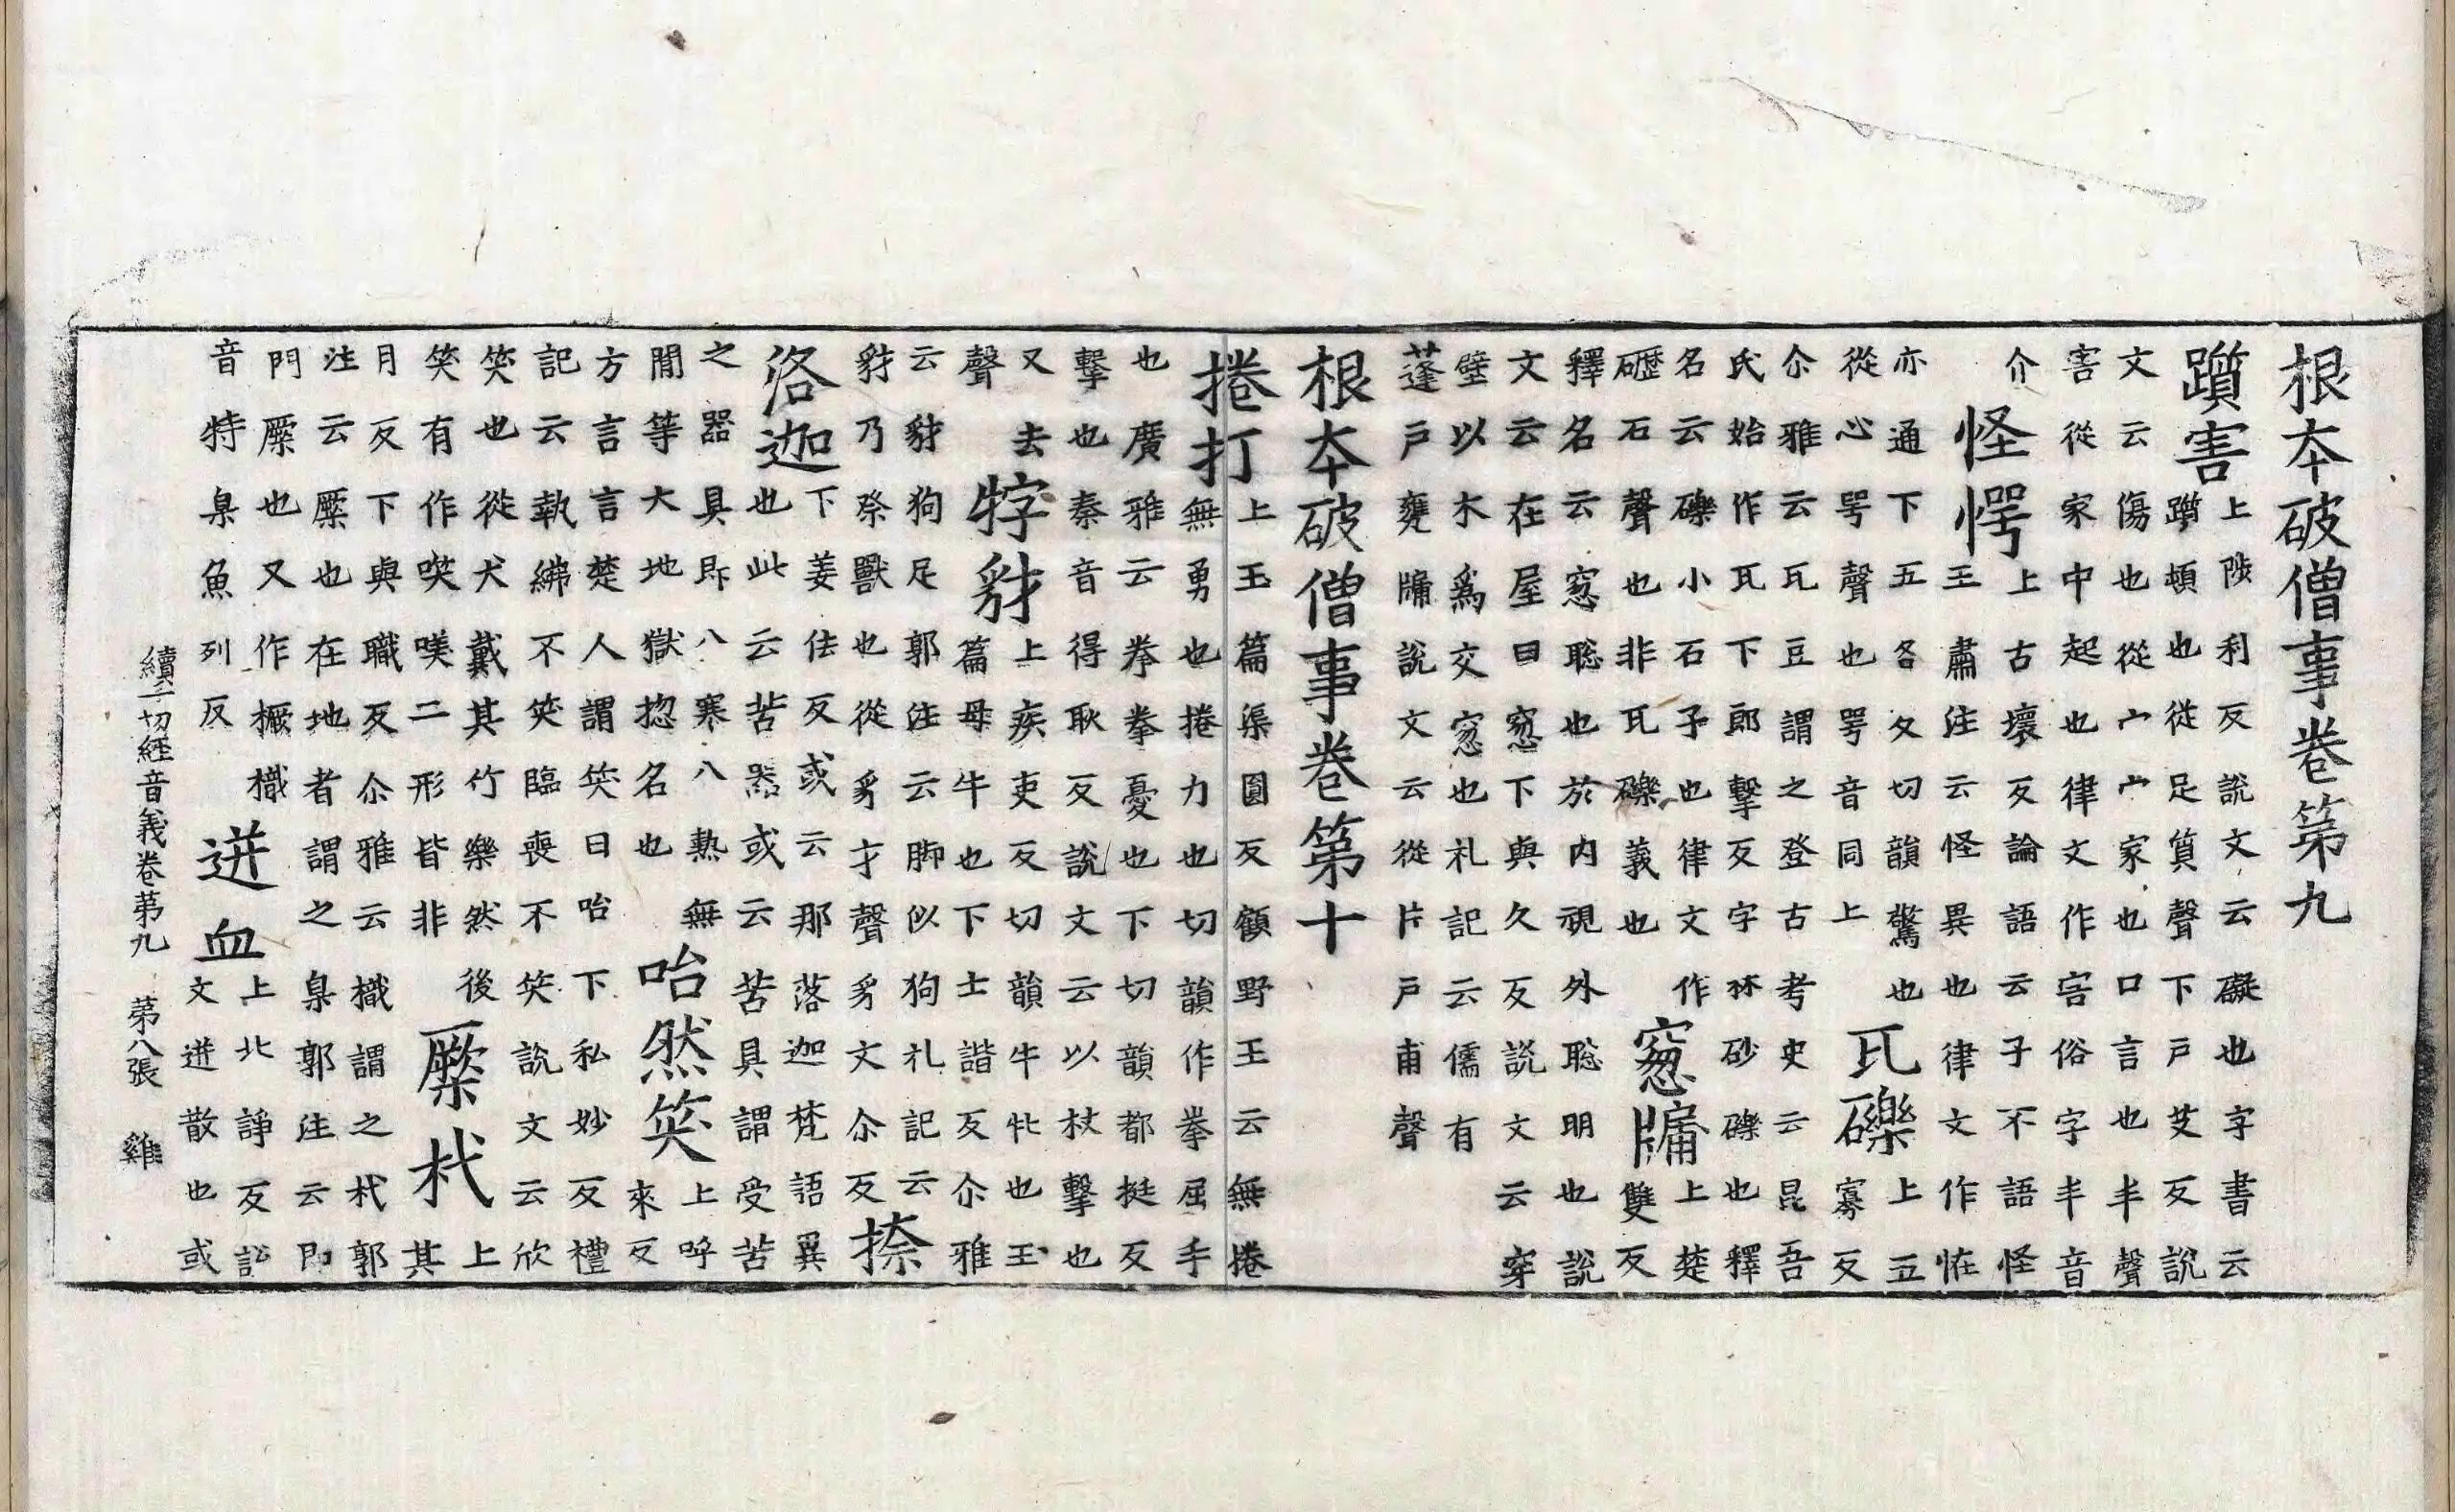 根本破僧事卷第九
躓害上陟利反說文云礙也字書云
躓頓也從足質聲下戶艾反說
文云傷也從宀宀家也口言也丯聲
害從家中起也律文作害俗字丯音
介
怪愕上古壞反論語云子不語怪
王肅注云怪異也律文作恠
亦通下五各反切韻驚也
從心咢聲也咢音同上
瓦礫上五
寡反
尒雅云瓦豆謂之登古考史云昆吾
氏始作瓦下郎擊反字林砂礫也釋
名云礫小石子也律文作
礰石聲也非瓦礫義也
窓牖上楚
雙反
釋名云窓聡也於內視外聡明也說
文云在屋曰窓下與久反說文云穿
壁以木爲交窓也礼記云儒有
蓬戶甕牖說文云從片戶甫聲
根本破僧事卷第十
捲打上玉篇渠圓反顧野王云無捲
無勇也捲力也切韻作拳屈手
也廣雅云拳拳憂也下切韻都挺反
擊也秦音得耿反說文云以杖擊也
又去
聲
牸豺上疾吏反切韻牛牝也玉
篇母牛也下士諧反尒雅
云豺狗足郭注云脚似狗礼記云
豺乃祭獸也從豸才聲豸文尒反
捺
洛迦下姜佉反或云那落迦梵語異
也此云苦器或云苦具謂受苦
之器具即八寒八熱無
間等大地獄惣名也
咍然笑上呼
來反
方言言楚人謂笑曰咍下私妙反禮
記云執紼不笑臨喪不笑說文云欣
笑也從犬戴其竹樂然後
笑有作唉二形皆非
橜杙上
其
月反下與職反尒雅云樴謂之杙郭
注云橜也在地者謂之臬郭注云即
門橜也又作橛樴
音特臬魚列反
迸血上北諍反說
文迸散也或
續一切経音義卷第九 第八張 雞